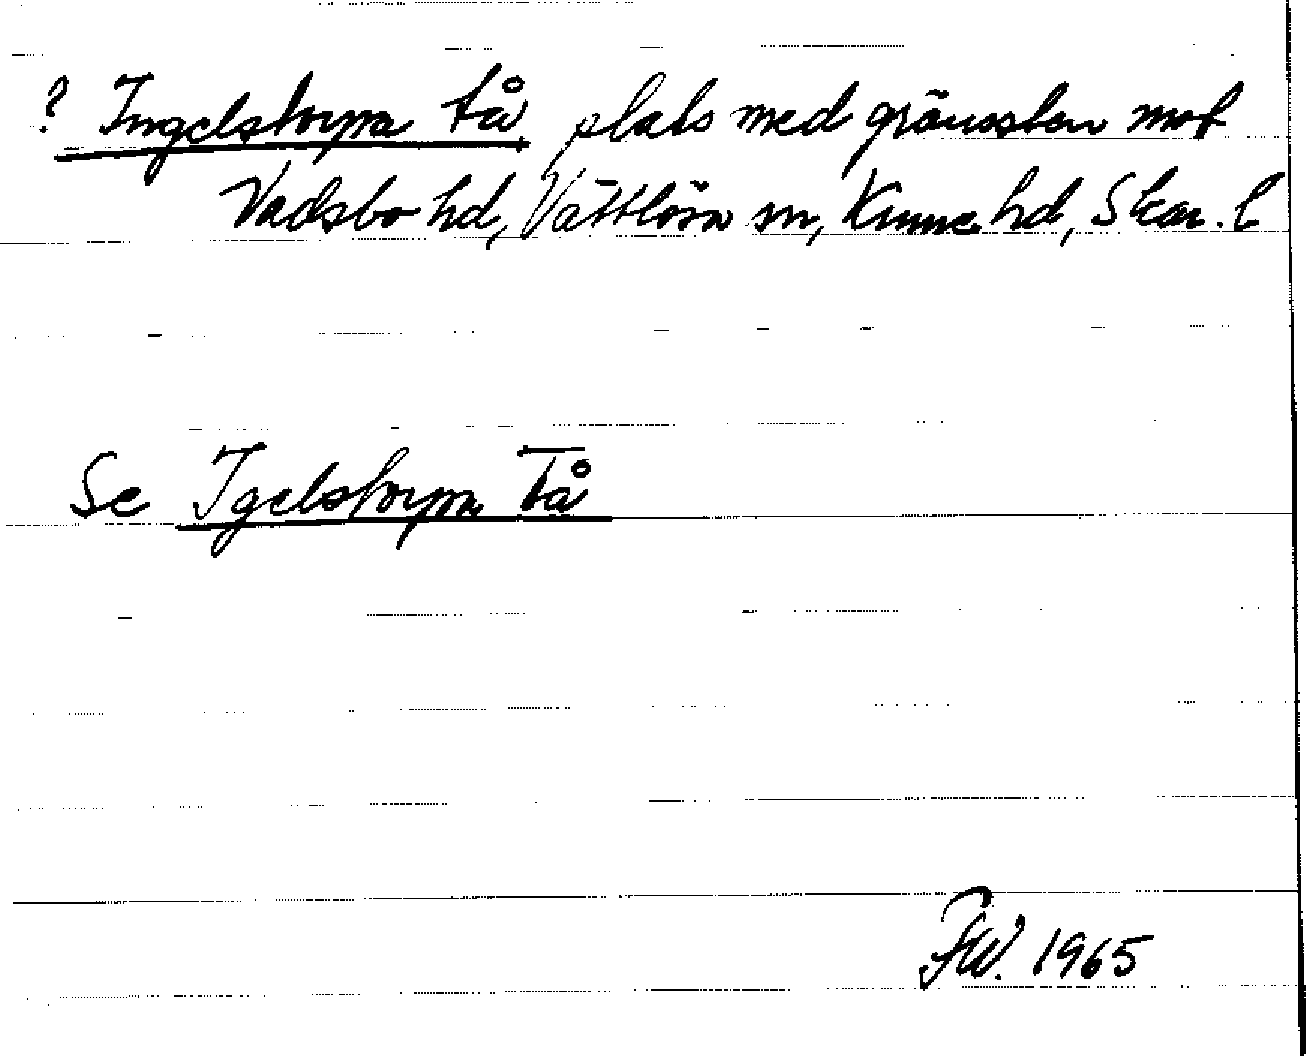 ? Ingelstorpa tå, plats med gränssten mot
Vadsbo hd, Vättlösa sn, Kinne hd, Skar. l
Se Igelstorpa Tå
FW. 1965